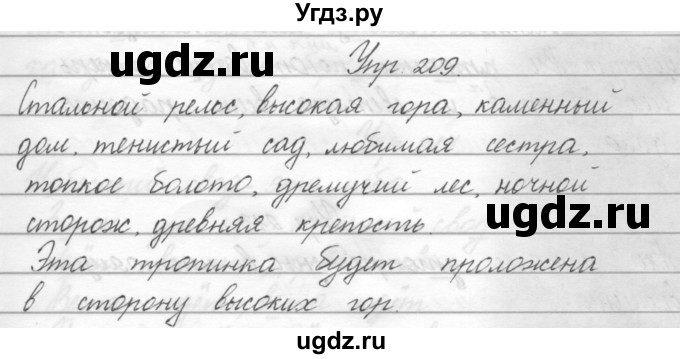 Угдз.ру
ugdz.ru
Упр. 209.
Стальной рельс, высокая гора, каменный
дом, тенистый сад, любимая сестра,
топкое болото, дремучий лес, ночной
сторож, древняя крепость.
ugdz.ru
Эта тропинка будет проложена
в сторону высоких гор.
ugdz.ru